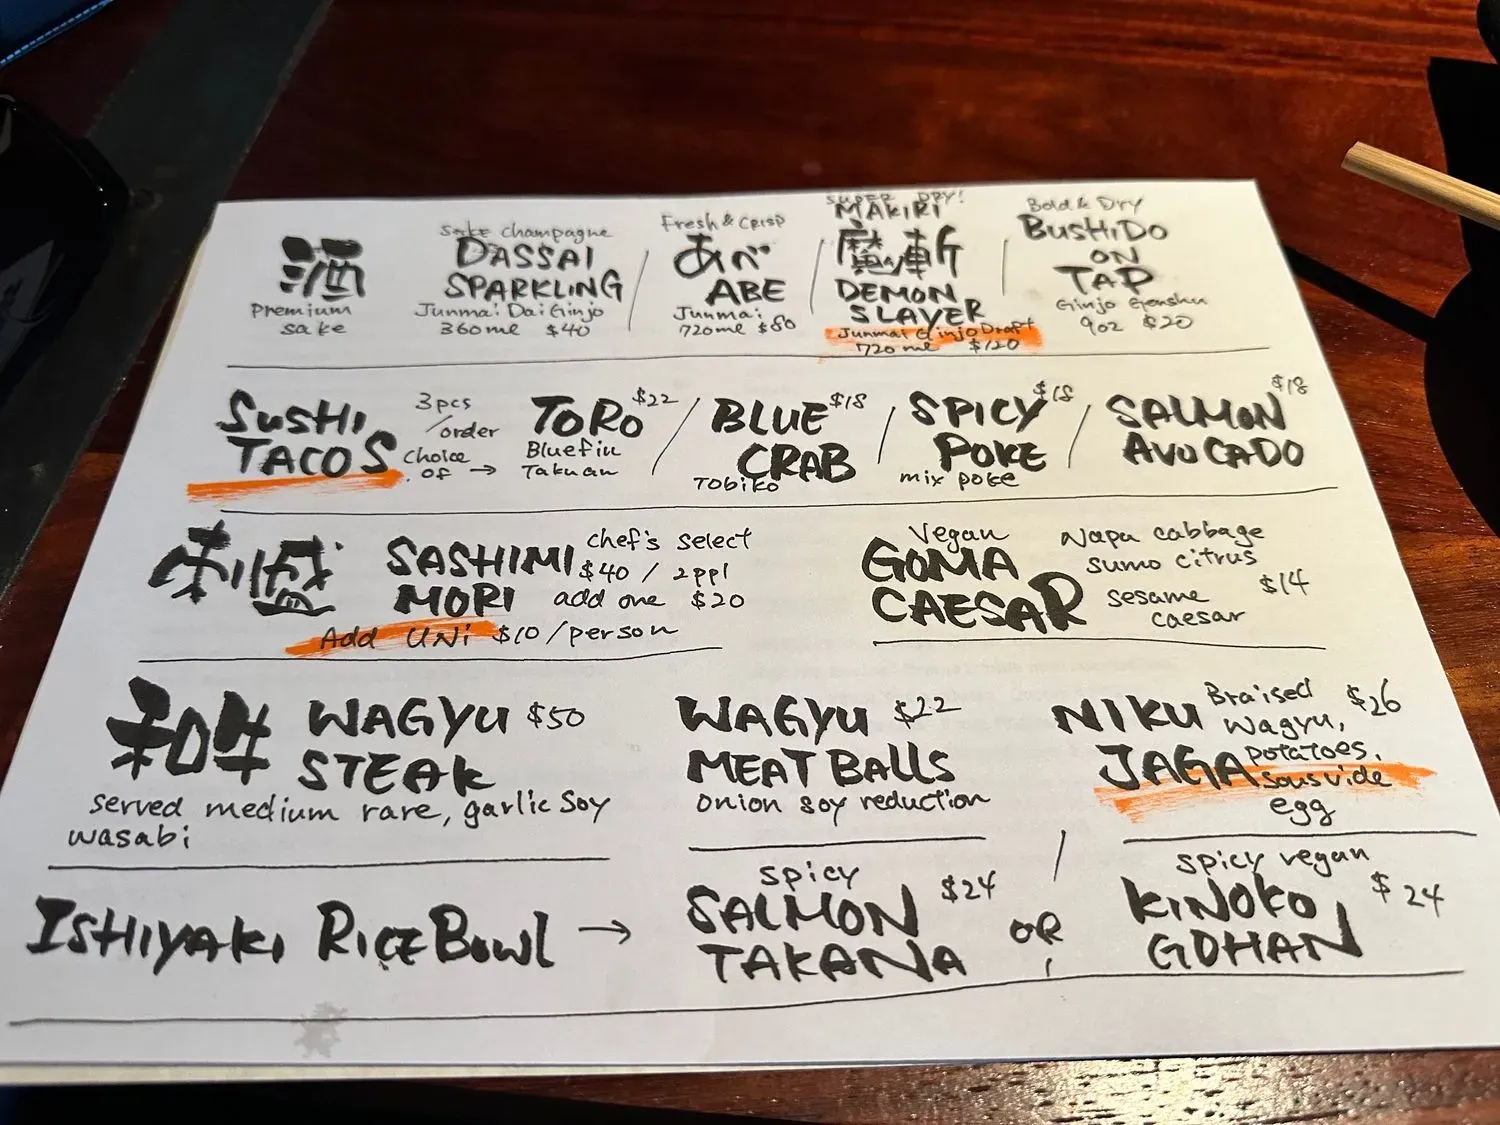 酒
Premium
sake
sake champagne
DASSAI
SPARKLING
Junmai DaiGinjo
360ml $40
Fresh & Crisp
あべ
ABE
Junmai
720ml $80
SUPER DRY!
MAKIRI
魔斬
DEMON
SLAYER
Junmai Ginjo Draft
720ml $120
Bold & Dry
BUSHIDO
ON
TAP
Ginjo Genshu
9oz $20
SUSHI
TACOS
3pcs
/order
choice
of →
TORO $22
Bluefin
Takuan
BLUE $18
CRAB
Tobiko
SPICY $18
POKE
mix poke
SALMON $18
AVOCADO
刺盛
SASHIMI
MORI
chef's select
$40 / 2ppl
add one $20
Add UNi $10/person
Vegan
GOMA
CAESAR
Napa cabbage
sumo citrus
sesame $14
caesar
和牛
WAGYU $50
STEAK
served medium rare, garlic soy
wasabi
WAGYU $22
MEAT BALLS
onion soy reduction
NIKU
JAGA
Braised $26
wagyu,
potatoes,
sousvide
egg
ISHIYAKI RICE BOWL →
spicy
SALMON $24
TAKANA
OR
spicy vegan
KINOKO $24
GOHAN